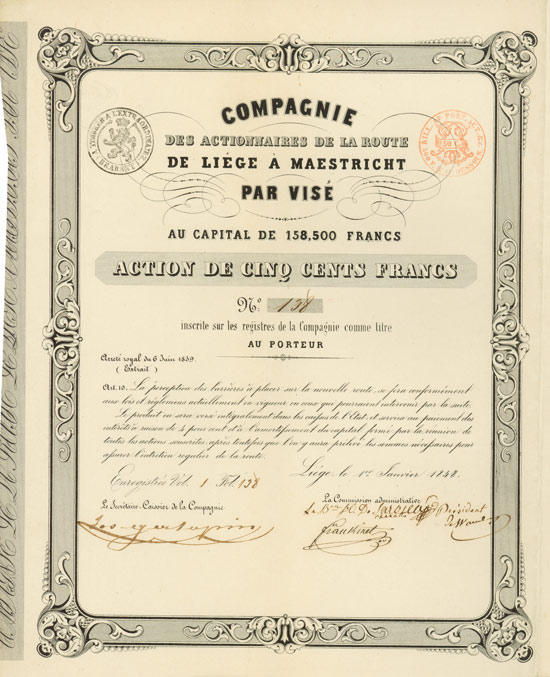 COMPAGNIE
DES ACTIONNAIRES DE LA ROUTE
DE LIÉGE À MAESTRICHT
PAR VISÉ
AU CAPITAL DE 158,500 FRANCS
ACTION DE CINQ CENTS FRANCS
N.º 138
inscrite sur les registres de la Compagnie comme titre
AU PORTEUR
Arreté royal du 6 Juin 1839.
(Extrait)
Art. 10. La perception des barrières à placer sur la nouvelle route, se fera conformément
aux lois et réglemens actuellement en vigueur ou ceux qui pourraient intervenir par la suite.
Le produit en sera versé intégralement dans les caisses de l'Etat, et servira au paiement des
intérêts à raison de 4 pons cent et à l'amortissement du capital formé par la réunion de
toutes les actions souscrites, après toutefois que l'on y aura prélevé les sommes nécessaires pour
assurer l'entretien régulier de la route.
Enregistrée Vol. 1 Fol. 138
Liége, le 1er Janvier 1848.
Le Secrétaire-Caissier de la Compagnie
La Commission administrative
Président